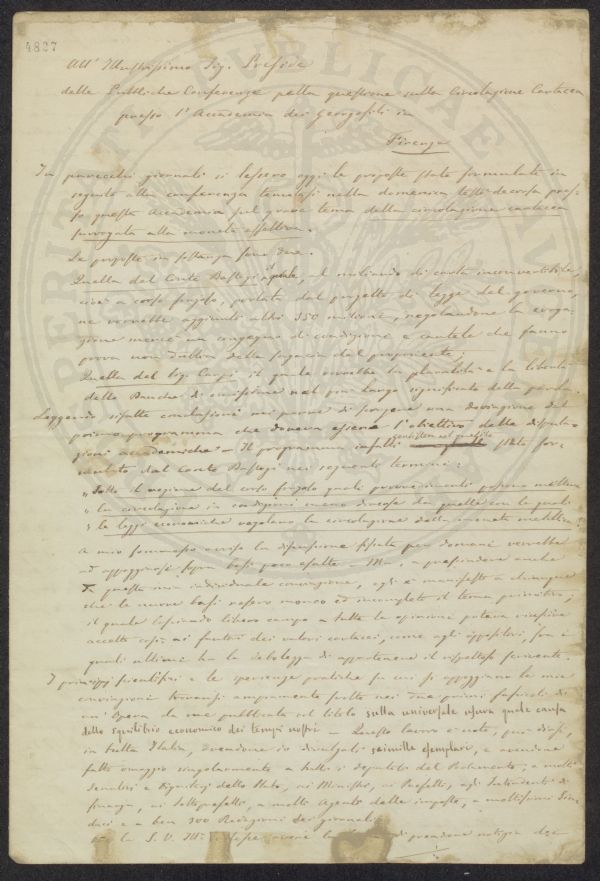 4827
All' Illustrissimo Sig. Preside
delle Pubbliche Conferenze sulla questione sulla Circolazione Cartacea
presso l'Accademia dei Georgofili in
Firenze
In parecchi giornali si lessero oggi le proposte state formulate in
seguito alla conferenza tenutasi nella domenica testè decorsa pres-
so questa Accademia sul grave tema della circolazione cartacea
surrogata alla moneta effettiva.
Le proposte in sostanza sono due.
Quella del Conte Bastogi il quale, al miliardo di carta inconvertibile,
cioè a corso forzoso, portato dal progetto di legge del governo,
ne vorrebbe aggiunti altri 350 milioni, regolandone la eroga-
zione mercè un congegno di condizioni e cautele che fanno
prova non dubbia della sagacia del proponente;
Quella del Sig. Carpi il quale vorrebbe la pluralità e la libertà
delle Banche di emissione nel più largo significato della parola.
Leggendo siffatte conclusioni mi parve di scorgere una deviazione dal
primo programma che doveva essere l'obiettivo delle disputa-
zioni accademiche - Il programma infatti stato for-
mulato dal conte Bastogi nei seguenti termini:
"Sotto il regime del corso forzoso quali provvedimenti possono mettere
"la circolazione in condizioni meno diverse da quelle con le quali
"le leggi economiche regolano la circolazione della moneta metallica.
A mio sommesso avviso la discussione fissata per domani verrebbe
ad appoggiarsi sopra basi poco esatte - Ma, a prescindere anche
questa mia individuale convinzione, egli è manifesto a chiunque
che le nuove basi resero monco ed incompleto il tema primitivo;
il quale lasciando libero campo a tutte le opinioni poteva riescire
accetto così ai fautori dei valori cartacei, come agli oppositori, fra i
quali ultimi ha la debolezza di appartenere il rispettoso scrivente.
I principj scientifici e le esperienze pratiche su cui si appoggiano le mie
convinzioni trovansi ampiamente svolte nei due primi fascicoli di
un' Opera da me pubblicata col titolo sulla universale usura quale causa
dello squilibrio economico dei tempi nostri - Questo lavoro è noto, può dirsi,
in tutta Italia, avendone io divulgati seimille esemplari, e avendone
fatto omaggio singolarmente a tutti i deputati del Parlamento, a molti
Senatori e Dignitarj dello Stato, ai Ministri, ai Prefetti, agli Intendenti di
finanza, ai Sottoprefetti, a molti Agenti delle imposte, a moltissimi Sin-
daci e a ben 300 Redazioni dei giornali.
la S. V. Ill. di prendere notizia dei